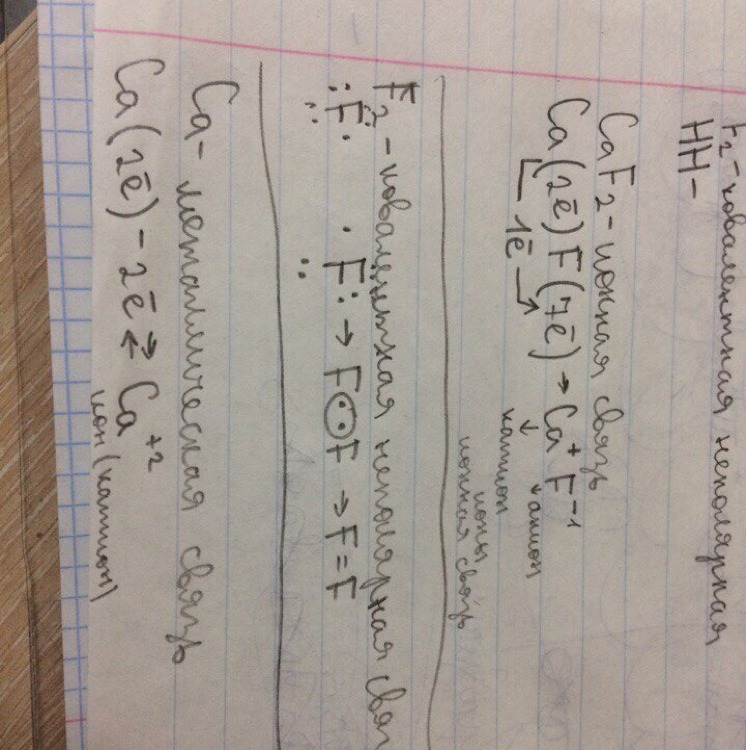 F₂-ковалентная неполярная
HH-
CaF₂-ионная связь
Ca(2ē) F(7ē) → Ca⁺ F⁻¹
1ē → ↓ катион ↓ анион
ионы
ионная связь
F₂-ковалентная неполярная связ
:F̈· ·F̈: → F(:)F → F=F
Ca- металлическая связь
Ca(2ē)-2ē ⇄ Ca⁺²
ион(катион)